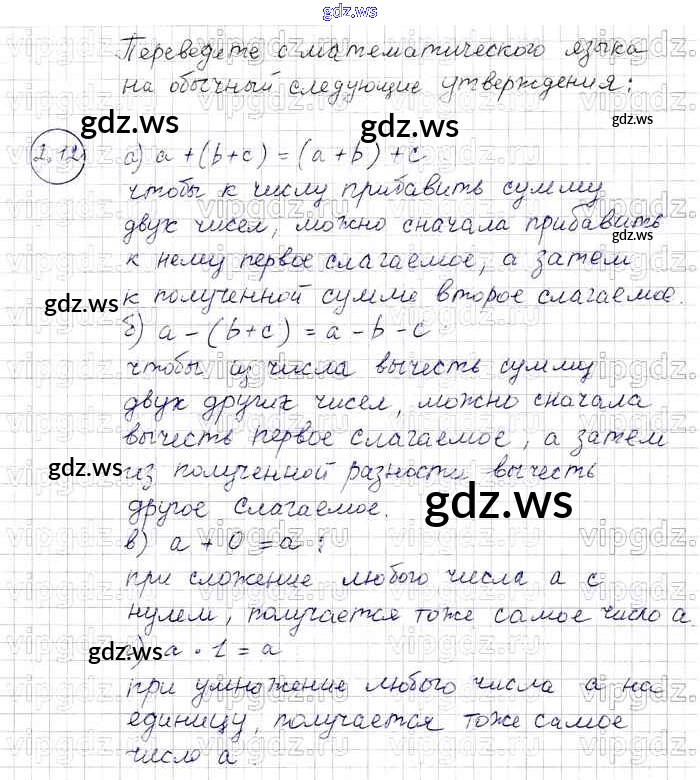 gdz.ws
Переведете с математического языка
на обычный следующие утверждения:
gdz.ws gdz.ws gdz.ws
2.12 а) a + (b + c) = (a + b) + c
чтобы к числу прибавить сумму
двух чисел, можно сначала прибавить
gdz.ws
к нему первое слагаемое, а затем
к полученной сумме второе слагаемое.
gdz.ws
б) a - (b + c) = a - b - c
чтобы из числа вычесть сумму
двух других чисел, можно сначала
вычесть первое слагаемое, а затем
gdz.ws
из полученной разности вычесть
другое слагаемое.
gdz.ws
в) a + 0 = a :
при сложение любого числа а с
нулем, получается тоже самое число а
г) a · 1 = a
gdz.ws gdz.ws
при умножение любого числа а на
единицу, получается тоже самое
число а